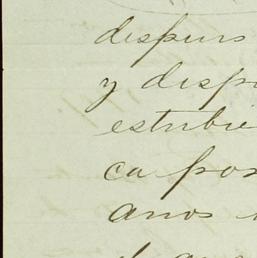 despues
y despu
estubie
ca por
anos